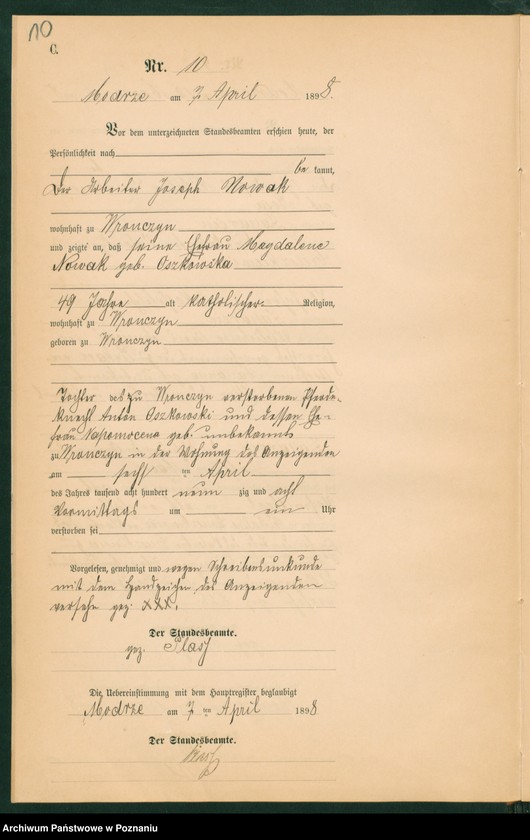 10
C.
Nr. 10
Modrze am 7. April 1898.
Vor dem unterzeichneten Standesbeamten erschien heute, der
Persönlichkeit nach
be kannt,
Der Arbeiter Joseph Nowak
wohnhaft zu Wronczyn
und zeigte an, daß seine Ehefrau Magdalene
Nowak geb. Oszkowska
49 Jahre alt katholischer Religion,
wohnhaft zu Wronczyn
geboren zu Wronczyn
Tochter des zu Wronczyn verstorbenen Pferde-
knecht Anton Oszkowski und dessen Ehe-
frau Nepomocena geb. unbekannt
zu Wronczyn in der Wohnung des Anzeigenden
am sechs ten April
des Jahres tausend acht hundert neun zig und acht
Vormittags um ein Uhr
verstorben sei
Vorgelesen, genehmigt und wegen Schreibensunkunde
mit dem Handzeichen des Anzeigenden
versehn gez. XXX.
Der Standesbeamte.
gez.
Die Uebereinstimmung mit dem Hauptregister beglaubigt
Modrze am 7 ten April 1898
Der Standesbeamte.
Archiwum Państwowe w Poznaniu